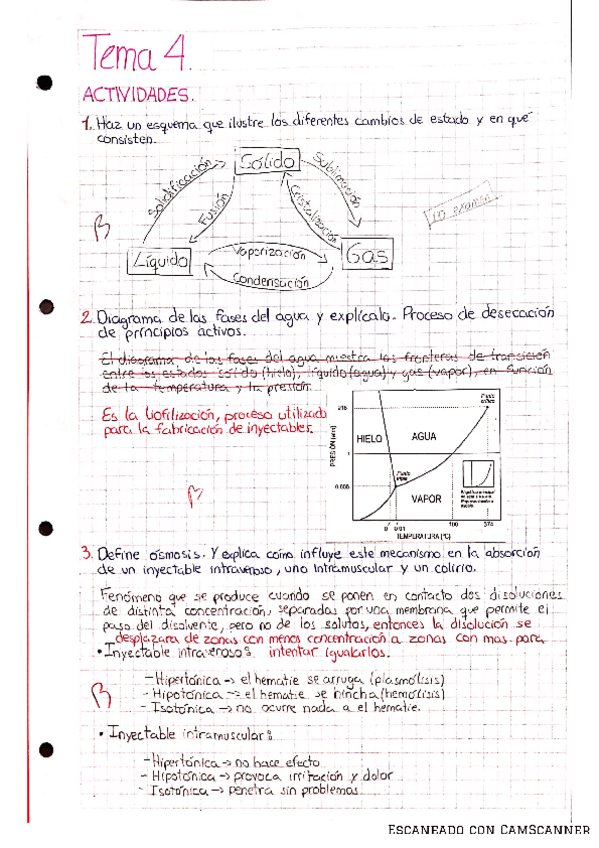 Tema 4.
ACTIVIDADES.
1. Haz un esquema que ilustre los diferentes cambios de estado y en qué
consisten.
Sólido
Solidificación
Fusión
Sublimación
Cristalización
Líquido
Vaporización
Condensación
Gas
NO examen
B
2. Diagrama de las fases del agua y explícalo. Proceso de desecación
de principios activos.
El diagrama de las fases del agua muestra las fronteras de transición
entre los estados sólido (hielo), líquido (agua) y gas (vapor), en función
de la temperatura y la presión.
Es la liofilización, proceso utilizado
para la fabricación de inyectables.
B
PRESIÓN (atm)
218
1
0.006
HIELO
AGUA
VAPOR
Punto
crítico
Punto
triple
0
0.01
100
374
TEMPERATURA (°C)
3. Define ósmosis. Y explica cómo influye este mecanismo en la absorción
de un inyectable intravenoso, uno intramuscular y un colirio.
Fenómeno que se produce cuando se ponen en contacto dos disoluciones
de distinta concentración, separadas por una membrana que permite el
paso del disolvente, pero no de los solutos, entonces la disolución se
desplazara de zonas con menos concentración a zonas con mas para
intentar igualarlos.
• Inyectable intravenoso:
- Hipertónica → el hematie se arruga (plasmólisis)
- Hipotónica → el hematie se hincha (hemólisis)
- Isotónica → no ocurre nada a el hematie.
B
• Inyectable intramuscular:
- Hipertónica → no hace efecto
- Hipotónica → provoca irritación y dolor
- Isotónica → penetra sin problemas
Escaneado con CamScanner